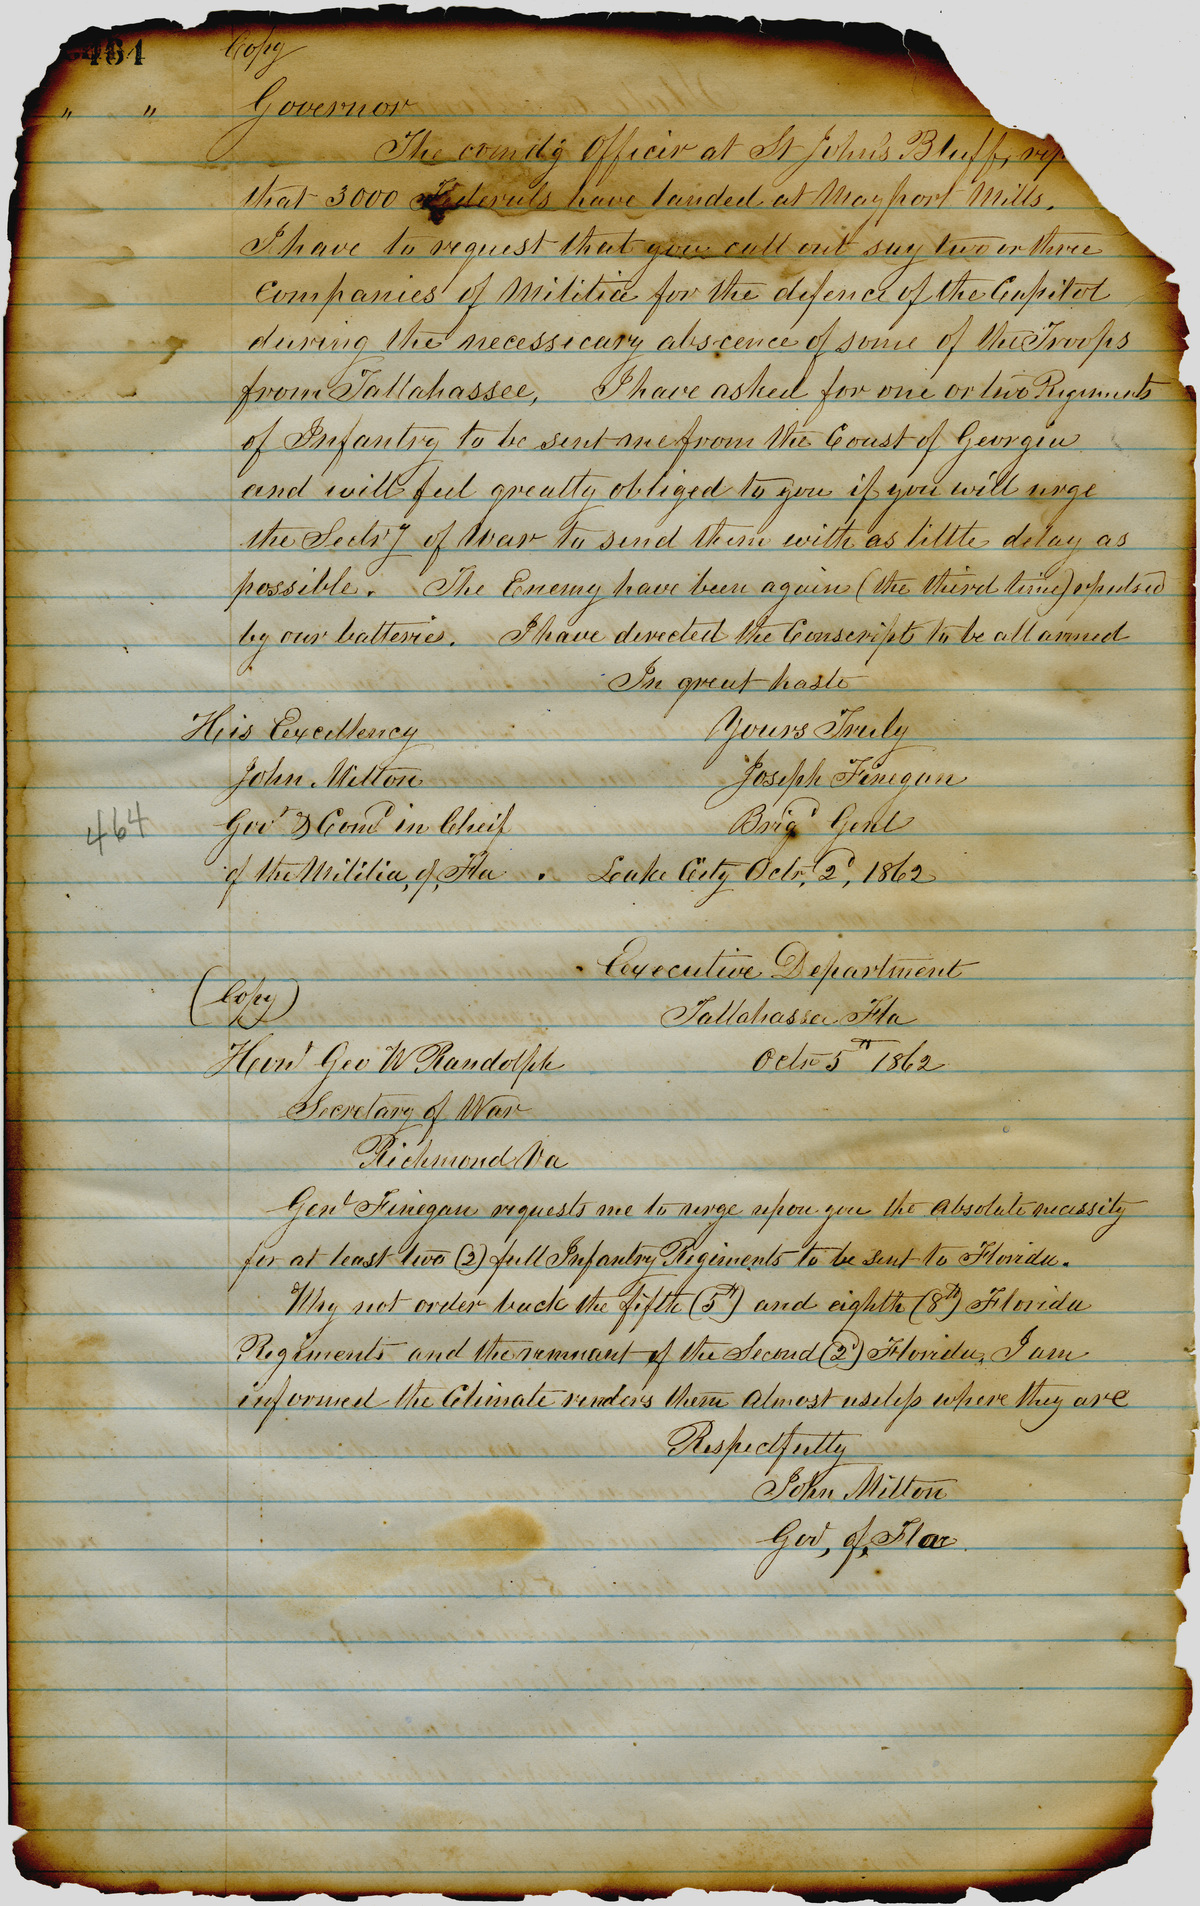 464
Copy
" " Governor
The comdg Officer at St John's Bluff, rep
that 3000 Federals have landed at Mayport Mills.
I have to request that you call out say two or three
Companies of Militia for the defence of the Capitol
during the necessecary abscence of some of the Troops
from Tallahassee, I have asked for one or two Regiments
of Infantry to be sent me from the Coast of Georgia
and will feel greatly obliged to you if you will urge
the Sectry of War to send them with as little delay as
possible. The Enemy have been again (the third time) repulsed
by our batteries. I have derected the Conscripts to be all armed
In great haste
His Excellency Yours Truly
John Milton Joseph Finegan
464 Govr & Comd in Cheif Brigd Genl
of the Militia, of, Fla . Lake City Octr, 2d, 1862
Executive Department
(Copy)
Tallahassee Fla
Honl Geo W Randolph Octr 5th 1862
Secretary of War
Richmond Va
Genl Finegan requests me to urge upon you the absolute necessity
for at least two (2) full Infantry Regiments to be sent to Florida.
Why not order back the fifth (5th) and eighth (8th) Florida
Regiments and the remnant of the Second (2d) Florida, I am
informed the Climate renders them almost useless where they are
Respectfully
John Milton
Gov, of, Fla